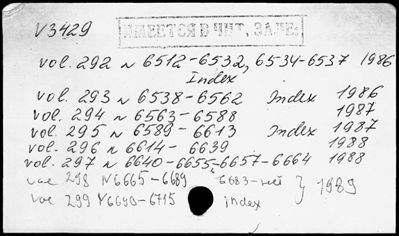 V3429 ИМЕЕТСЯ В ЧИТ. ЗАЛЕ.
vol. 292 № 6512-6532, 6534-6537 1986
Index
vol. 293 № 6538-6562 Index 1986
vol. 294 № 6563-6588 1987
vol. 295 № 6589-6613 Index 1987
vol. 296 № 6614-6639 1988
vol. 297 № 6640-6655-6657-6664 1988
vol 298 N6665-6689 6683-нет } 1989
vol 299 N6690-6715 index